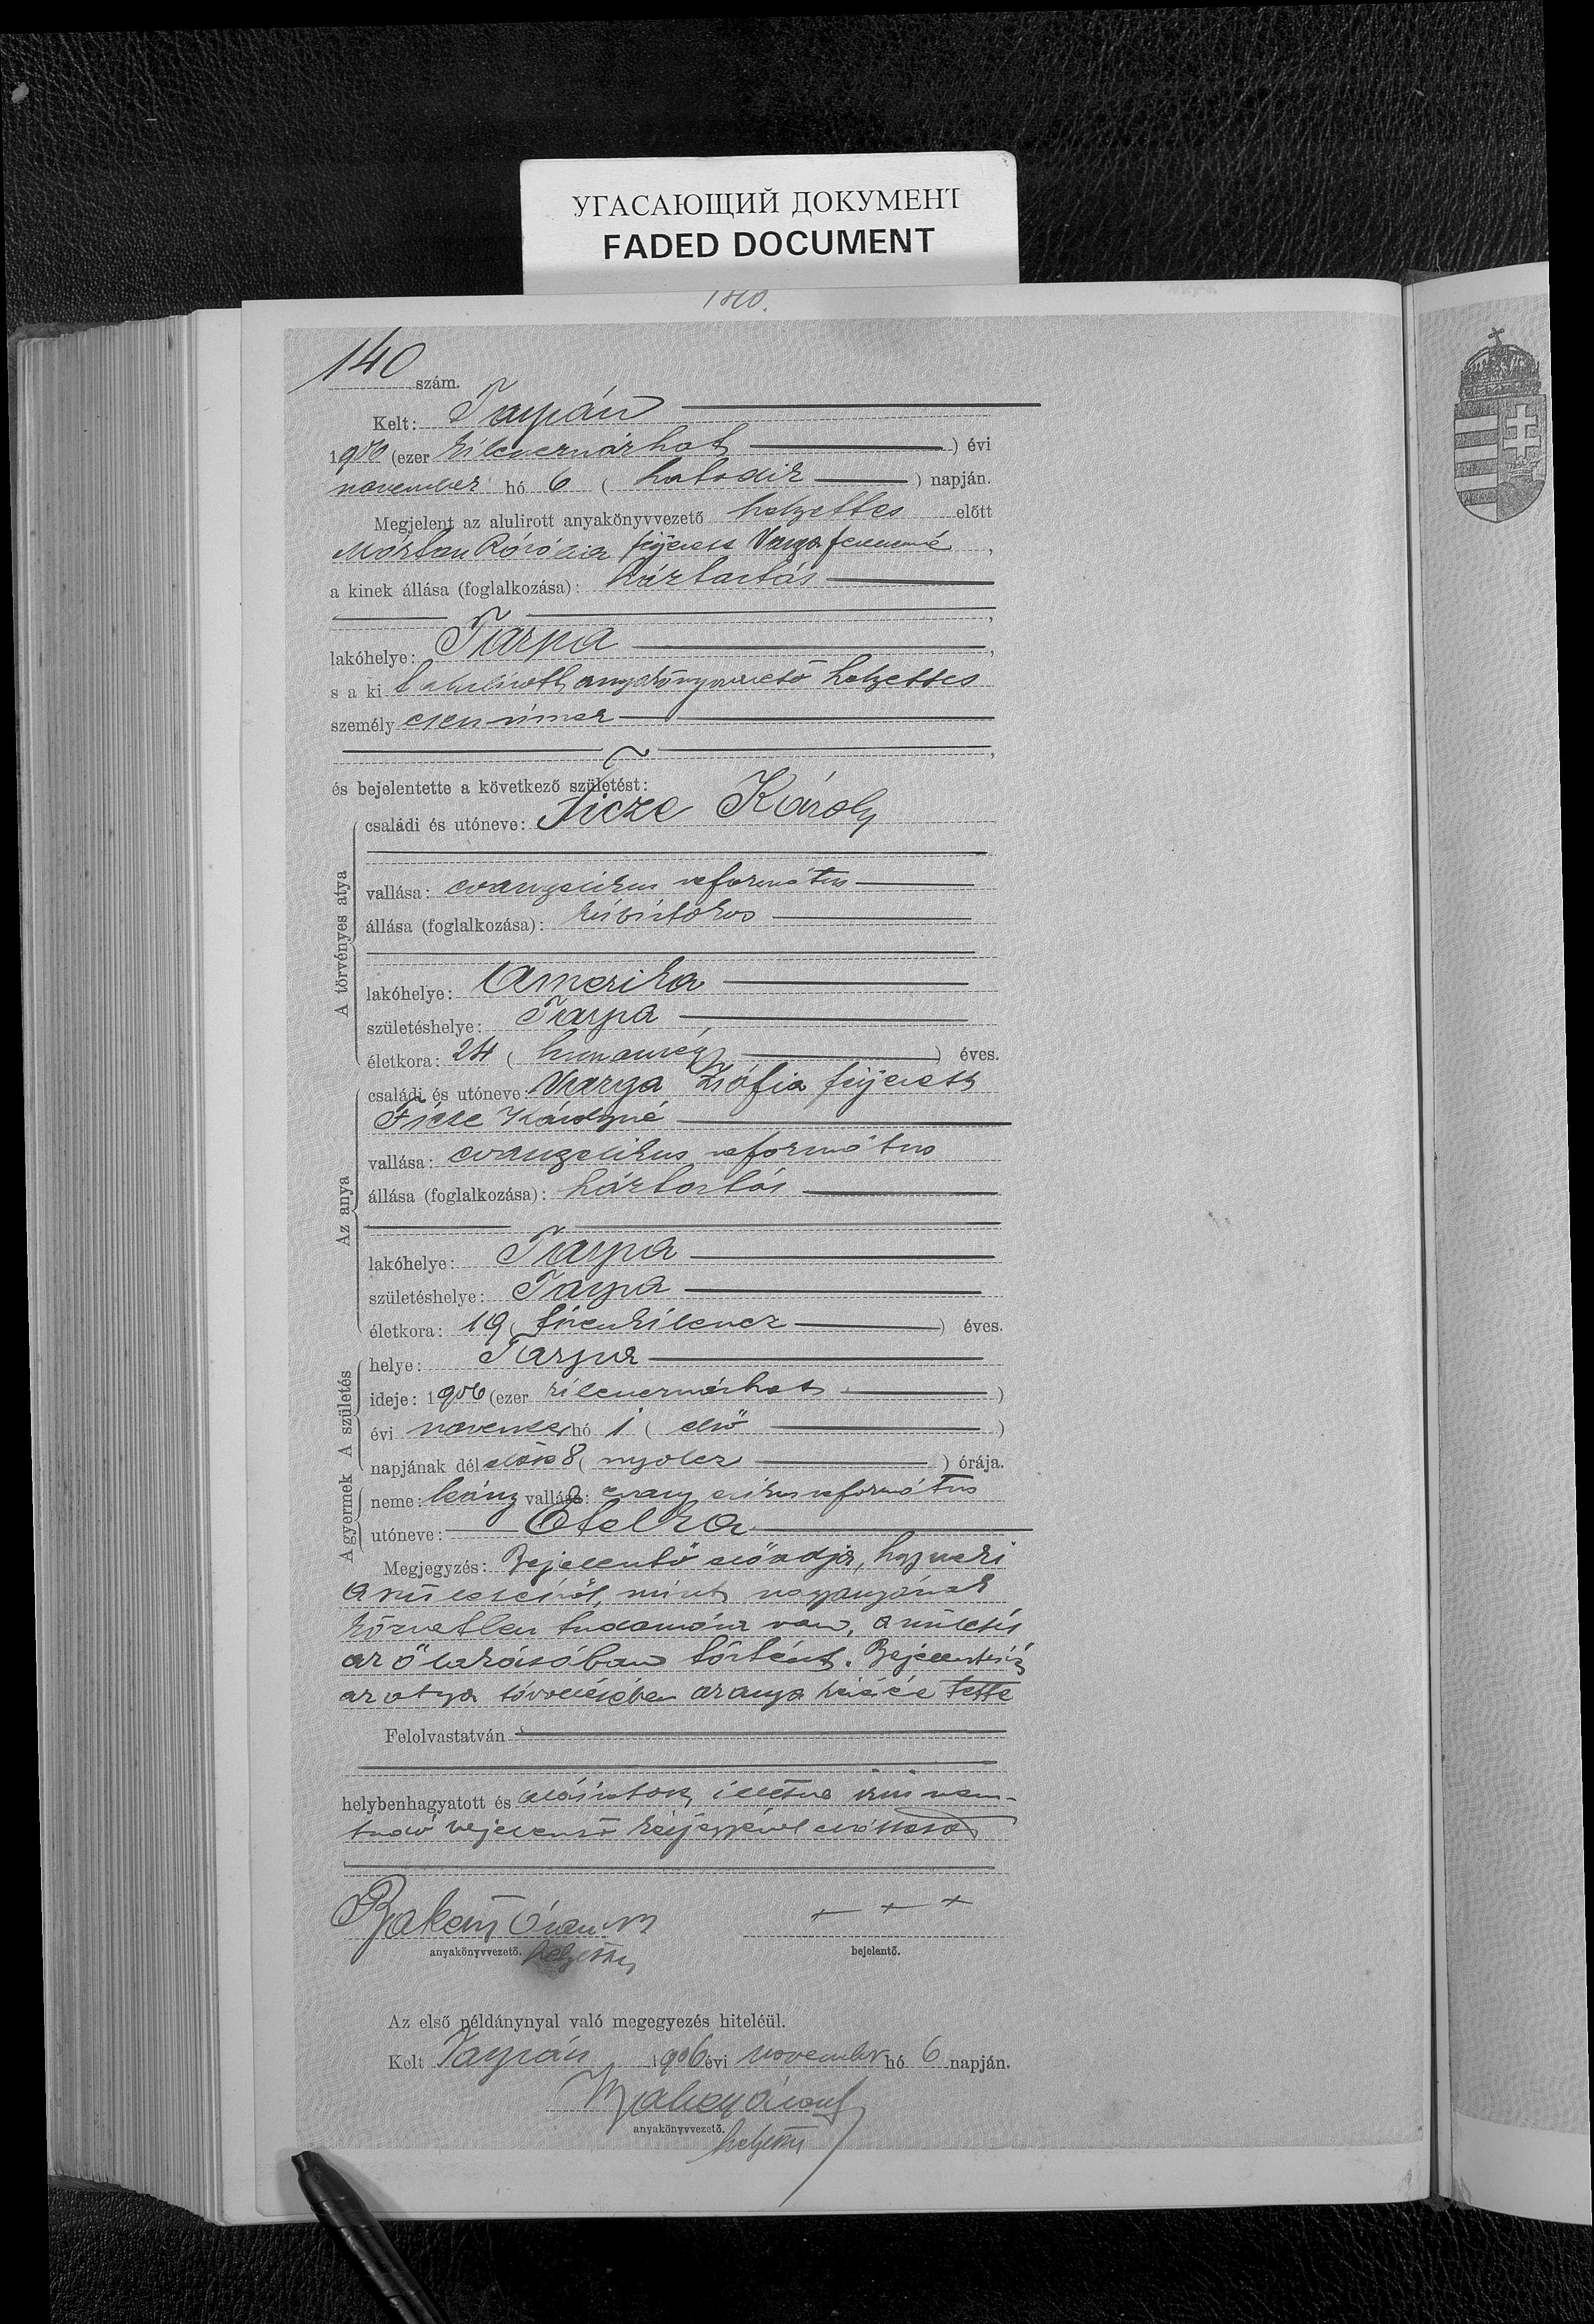 УГАСАЮЩИЙ ДОКУМЕНТ
FADED DOCUMENT
140 szám.
Kelt: Tarpán
1906 (ezer kilenczszázhat) évi
november hó 6 (hatodik) napján.
Megjelent az alulirott anyakönyvvezető helyettes előtt
Márton férjezett Varga Ferenczné,
a kinek állása (foglalkozása): háztartás
lakóhelye: Tarpa,
s a ki alulirott anyakönyvvezető helyettes
személyesen ismer
és bejelentette a következő születést:
A törvényes atya
családi és utóneve: Ficze Károly
vallása: evangelikus református
állása (foglalkozása): kisbirtokos
lakóhelye: Amerika
születéshelye: Tarpa
életkora: 24 (husznnégy) éves.
Az anya
családi és utóneve: Varga Zsófia férjezett
Ficze Károlyné
vallása: evangelikus református
állása (foglalkozása): háztartás
lakóhelye: Tarpa
születéshelye: Tarpa
életkora: 19 (tizenkilencz) éves.
A születés
helye: Tarpa
ideje: 1906 (ezer kilenczszázhat)
évi november hó 1 (első)
napjának délelőtt 8 (nyolcz) órája.
A gyermek
neme: leány vallása: evangelikus református
utóneve: Etelka
Megjegyzés: Bejelentő előadja, hogy neki
a születésről, mint nagyanyának
közvetlen tudomása van, a születés
az ő lakásában történt. Bejelentését
az atya távollétében az anya helyett tette
Felolvastatván
helybenhagyatott és aláíratott, illetve írni nem
tudó bejelentő kézjegyével elláttatott
anyakönyvvezető. helyettes
+ + +
bejelentő.
Az első példánynyal való megegyezés hiteléül.
Kelt Tarpán 1906 évi november hó 6 napján.
anyakönyvvezető.
helyettes